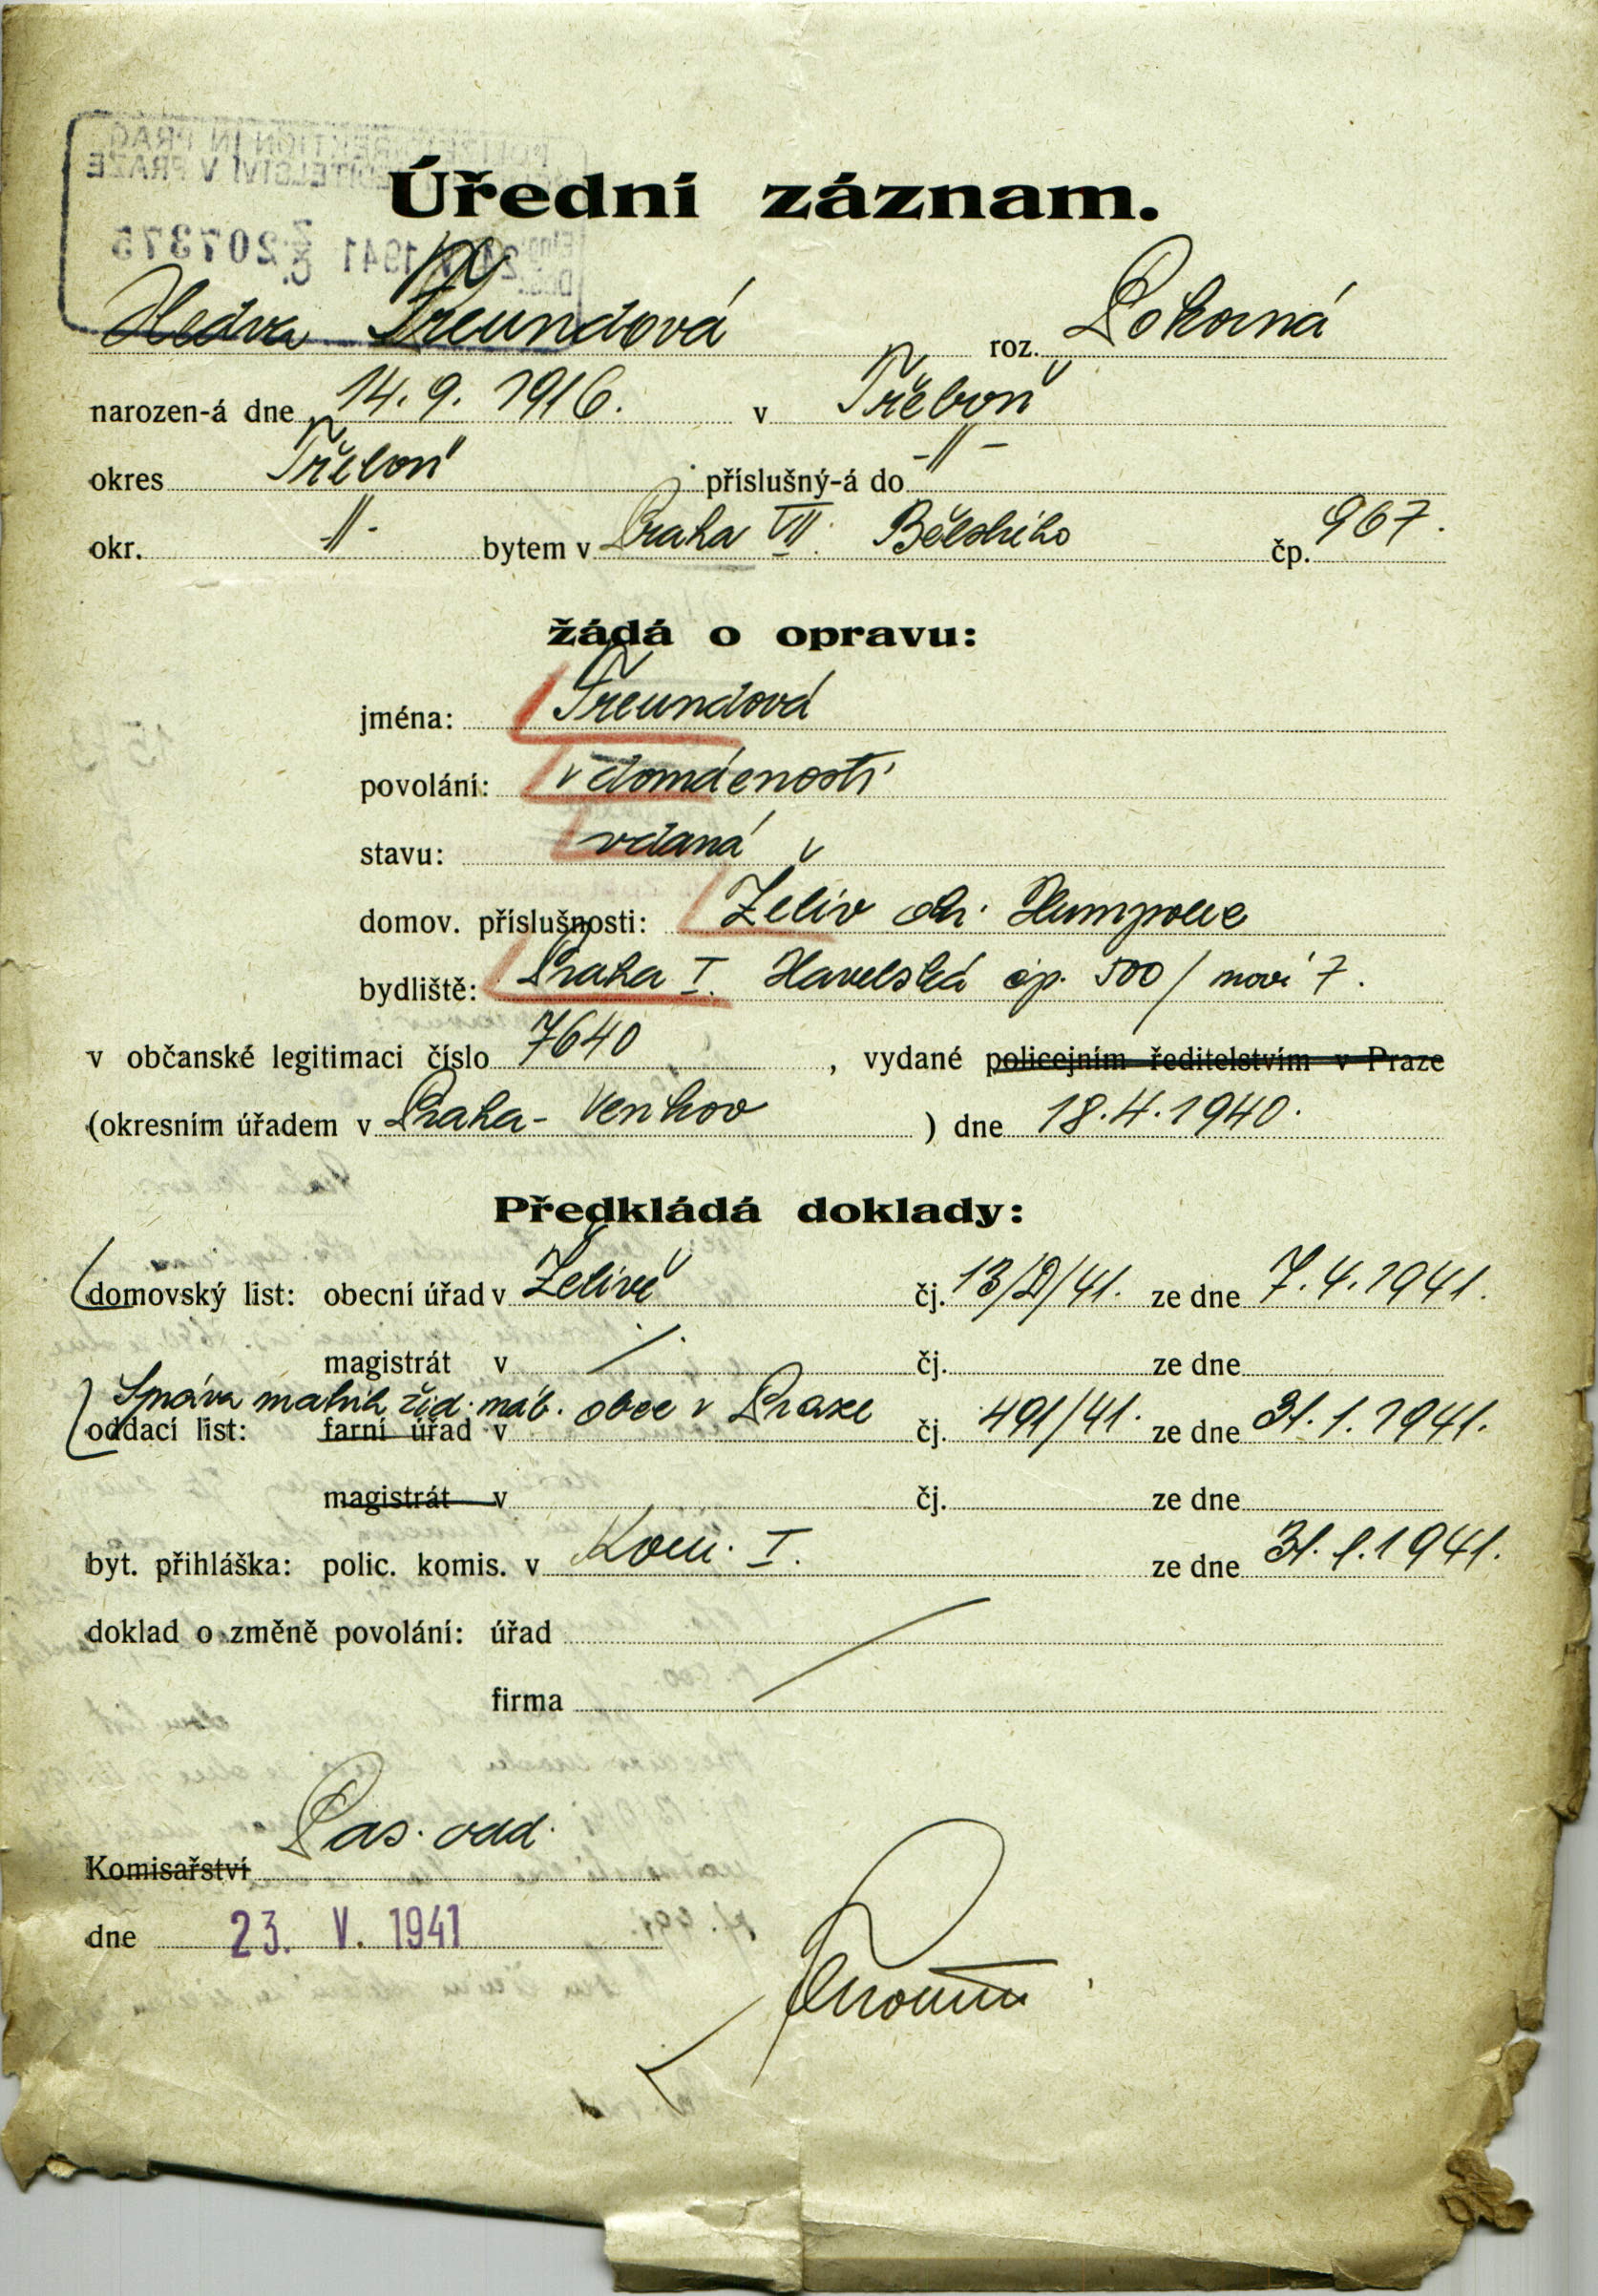 POLIZEIDIREKTION IN PRAG
ŘEDITELSTVÍ V PRAZE
24. V. 1941 207375
Úřední záznam.
Hedva Freundová roz. Pokorná
narozen-á dne 14. 9. 1916. v Třeboň
okres Třeboň příslušný-á do -"-
okr. -"- bytem v Praha VII. Bělského čp. 967.
žádá o opravu:
jména: Freundová
povolání: v domácnosti
stavu: vdaná v
domov. příslušnosti: Želiv okr. Humpolec
bydliště: Praha I. Havelská čp. 500/nové 7.
v občanské legitimaci číslo 7640, vydané policejním ředitelstvím v Praze
(okresním úřadem v Praha-Venkov) dne 18. 4. 1940.
Předkládá doklady:
domovský list: obecní úřad v Želivě čj. 13/D/41. ze dne 7. 4. 1941.
magistrát v ./. čj. ze dne
Správa matrik žid. náb. obce v Praze
oddací list: farní úřad v čj. 491/41. ze dne 31. 1. 1941.
magistrát v čj. ze dne
byt. přihláška: polic. komis. v Kom. I. ze dne 31. 1. 1941.
doklad o změně povolání: úřad
firma
Pas. odd.
Komisařství
dne 23. V. 1941